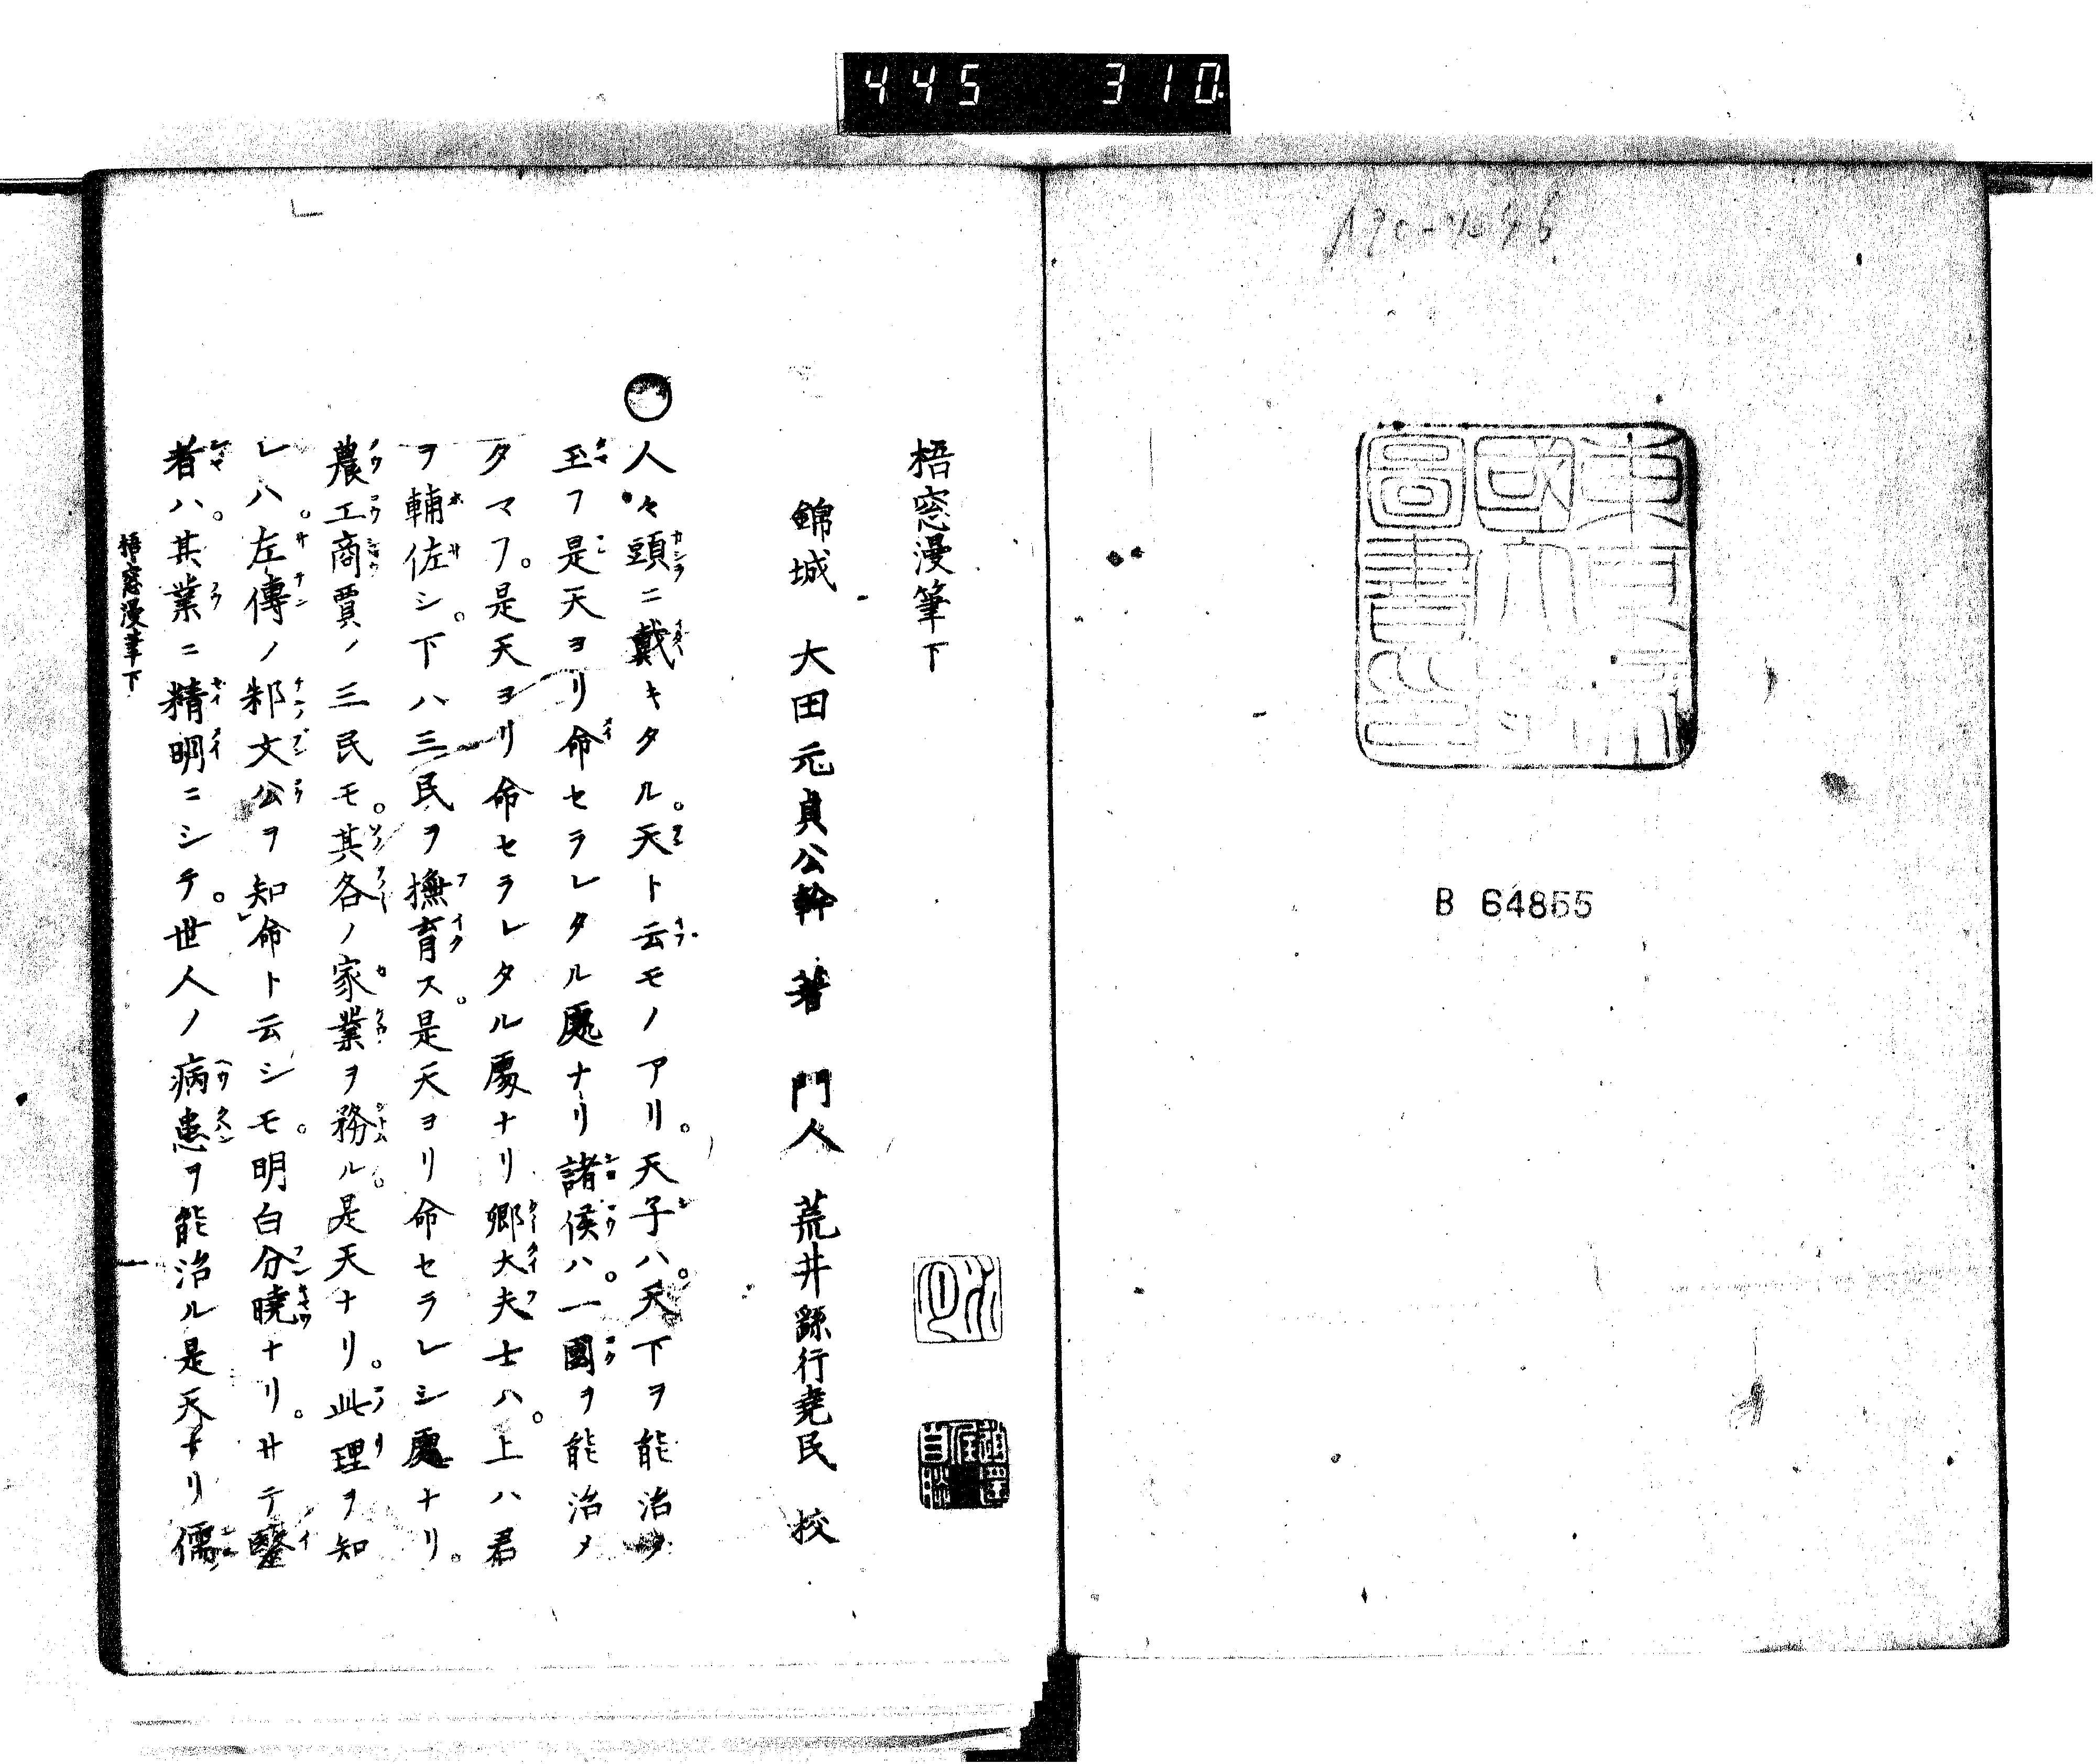 445 310
B 64855
梧窓漫筆下
錦城 大田元貞公幹 著 門人 荒井繇行堯民 校
◯人々頭ニ戴キタル。天ト云モノアリ。天子ハ。天下ヲ能治タ
玉フ是天ヨリ命セラレタル處ナリ諸侯ハ。一國ヲ能治メ
タマフ。是天ヨリ命セラレタル處ナリ卿大夫士ハ。上ハ君
ヲ輔佐シ。下ハ三民ヲ撫育ス。是天ヨリ命セラレシ處ナリ。
農工商賈ノ三民モ。其各ノ家業ヲ務ル。是天ナリ。此理ヲ知
レハ。左傳ノ邾文公ヲ知命ト云シモ。明白分曉ナリ。サテ醫
者ハ。其業ニ精明ニシテ。世人ノ病患ヲ能治ル是天ナリ儒
梧窓漫筆下